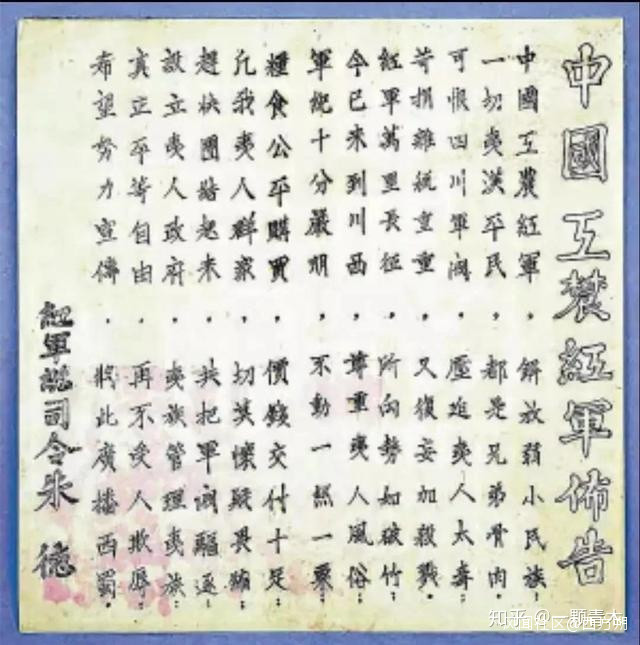 中國工農紅軍佈告
中國工農紅軍，解放弱小民族；
一切夷漢平民，都是兄弟骨肉。
可恨四川軍閥，壓迫夷人太毒；
苛捐雜稅重重，又復妄加殺戮。
紅軍萬里長征，所向勢如破竹；
今已來到川西，尊重夷人風俗；
軍紀十分嚴明，不動一絲一粟；
糧食公平購買，價錢交付十足；
凡我夷人群眾，切莫懷疑畏縮；
趕快團結起來，共把軍閥驅逐；
設立夷人政府，夷族管理夷族；
真正平等自由，再不受人欺辱；
希望努力宣傳，將此廣播西蜀。
紅軍總司令朱德
知乎 @一顆青木